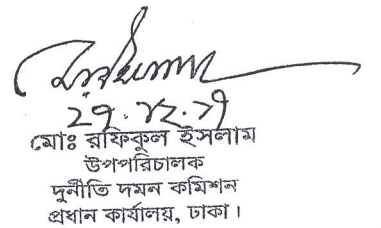 মোঃ রফিকুল ইসলাম
উপপরিচালক
দুর্নীতি দমন কমিশন
প্রধান কার্যালয়, ঢাকা।